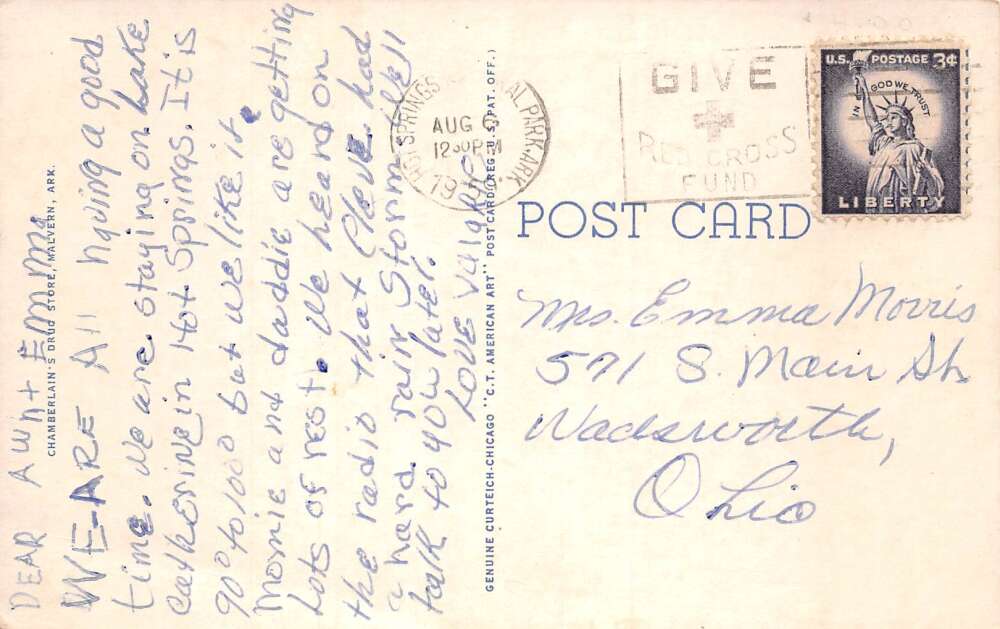 DEAR AUNT EMMA
WE-ARE All hqving a good
time. We are staying on Lake
Catherine in Hot Springs. It is
90° to 100° but we like it.
Momie and daddie are getting
Lots of rest. We heard on
the radio that Cleve. had
a hard rain Storm. we'll
talk to yow later.
Love Valarie
CHAMBERLAIN'S DRUG STORE, MALVERN, ARK.
GENUINE CURTEICH-CHICAGO "C.T. AMERICAN ART" POST CARD (REG. U.S. PAT. OFF.)
HOT SPRINGS NATIONAL PARK, ARK.
AUG
12 30 PM
19
GIVE
RED CROSS
FUND
U.S. POSTAGE 3¢
IN GOD WE TRUST
LIBERTY
POST CARD
Mrs. Emma Morris
571 S. Main St.
Wadsworth,
Ohio